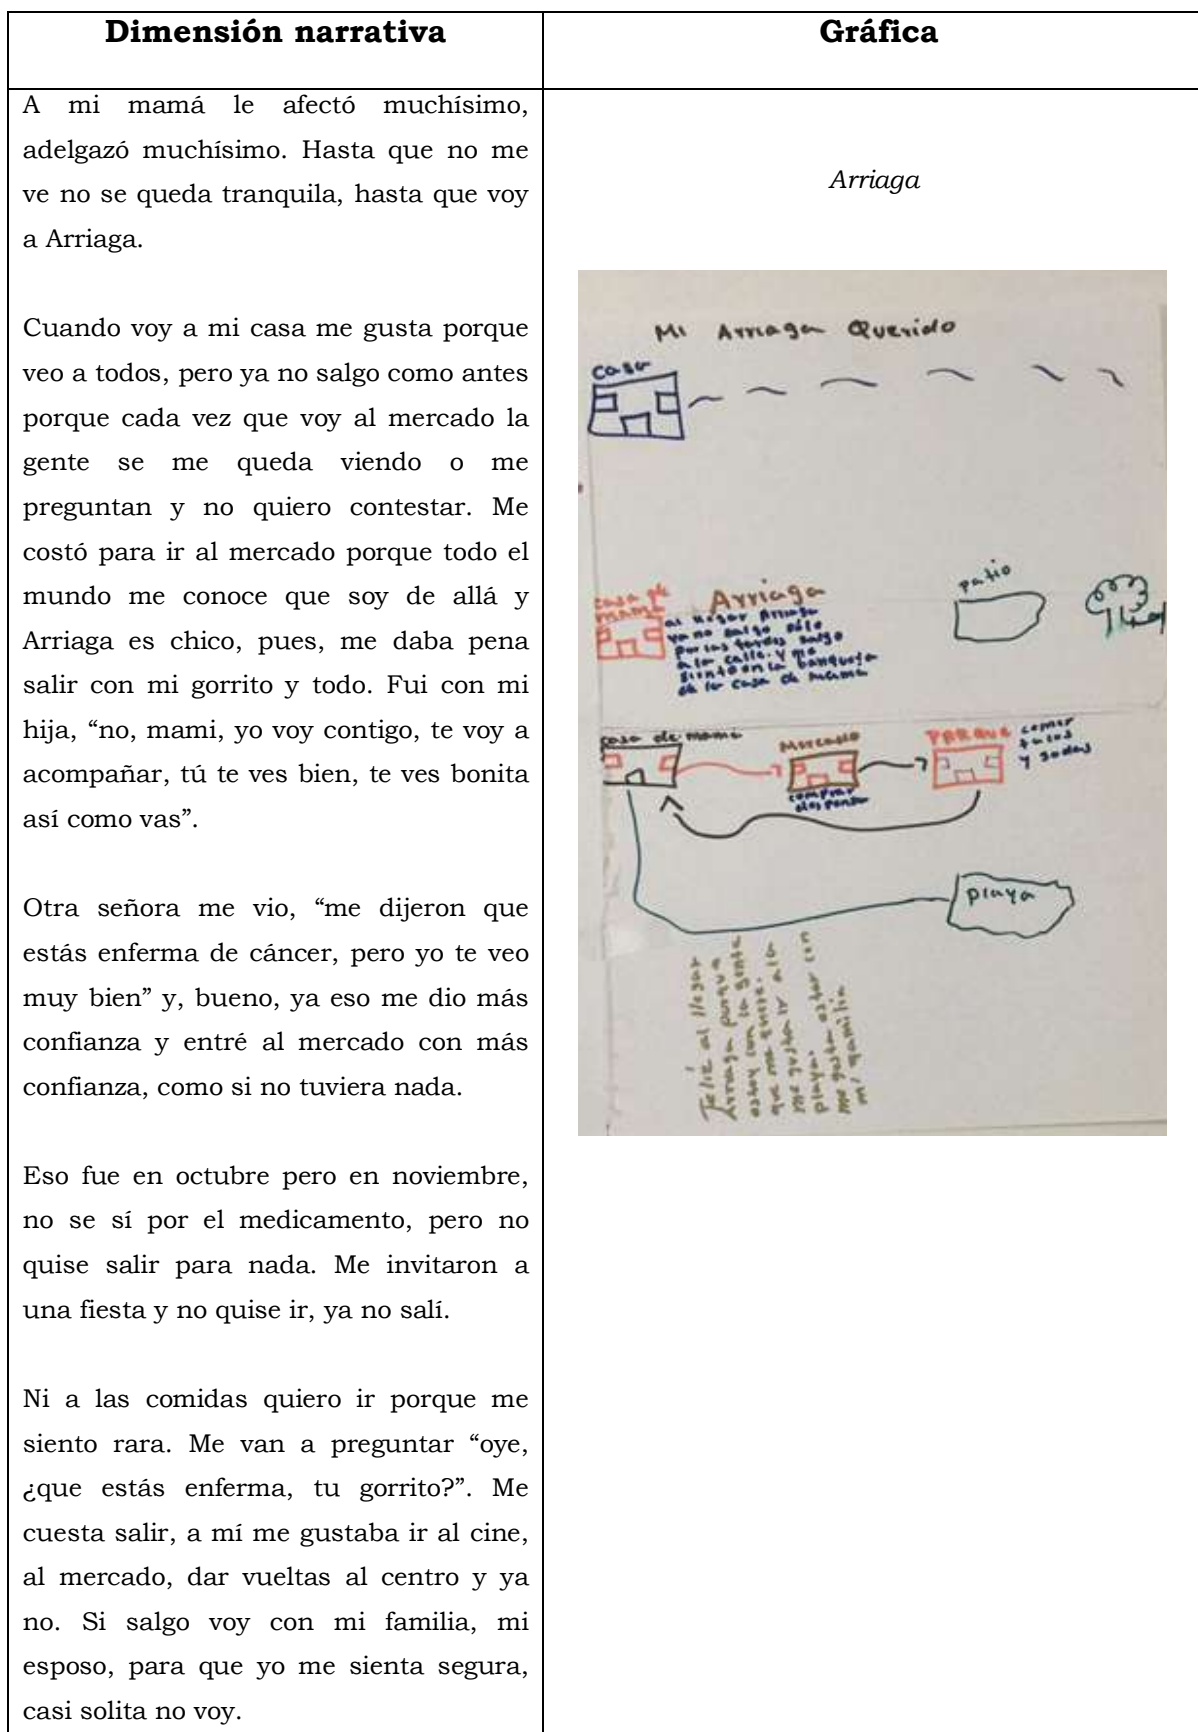 Dimensión narrativa
Gráfica
A mi mamá le afectó muchísimo,
adelgazó muchísimo. Hasta que no me
ve no se queda tranquila, hasta que voy
a Arriaga.
Cuando voy a mi casa me gusta porque
veo a todos, pero ya no salgo como antes
porque cada vez que voy al mercado la
gente se me queda viendo o me
preguntan y no quiero contestar. Me
costó para ir al mercado porque todo el
mundo me conoce que soy de allá y
Arriaga es chico, pues, me daba pena
salir con mi gorrito y todo. Fui con mi
hija, “no, mami, yo voy contigo, te voy a
acompañar, tú te ves bien, te ves bonita
así como vas”.
Otra señora me vio, “me dijeron que
estás enferma de cáncer, pero yo te veo
muy bien” y, bueno, ya eso me dio más
confianza y entré al mercado con más
confianza, como si no tuviera nada.
Eso fue en octubre pero en noviembre,
no se sí por el medicamento, pero no
quise salir para nada. Me invitaron a
una fiesta y no quise ir, ya no salí.
Ni a las comidas quiero ir porque me
siento rara. Me van a preguntar “oye,
¿que estás enferma, tu gorrito?”. Me
cuesta salir, a mí me gustaba ir al cine,
al mercado, dar vueltas al centro y ya
no. Si salgo voy con mi familia, mi
esposo, para que yo me sienta segura,
casi solita no voy.
Arriaga
Mi Arriaga Querido
casa
casa de
mamá
Arriaga
al llegar Arriaga
ya no salgo sólo
por las tardes salgo
a la calle. y me
siento en la banqueta
de la casa de mamá
patio
casa de mamá
Mercado
comprar
despensa
PARQUE
comer
tacos
y sodas
playa
Feliz al llegar
Arriaga porque
estoy con la gente
que me quiere.
me gusta ir a la
playa.
me gusta estar con
mi familia